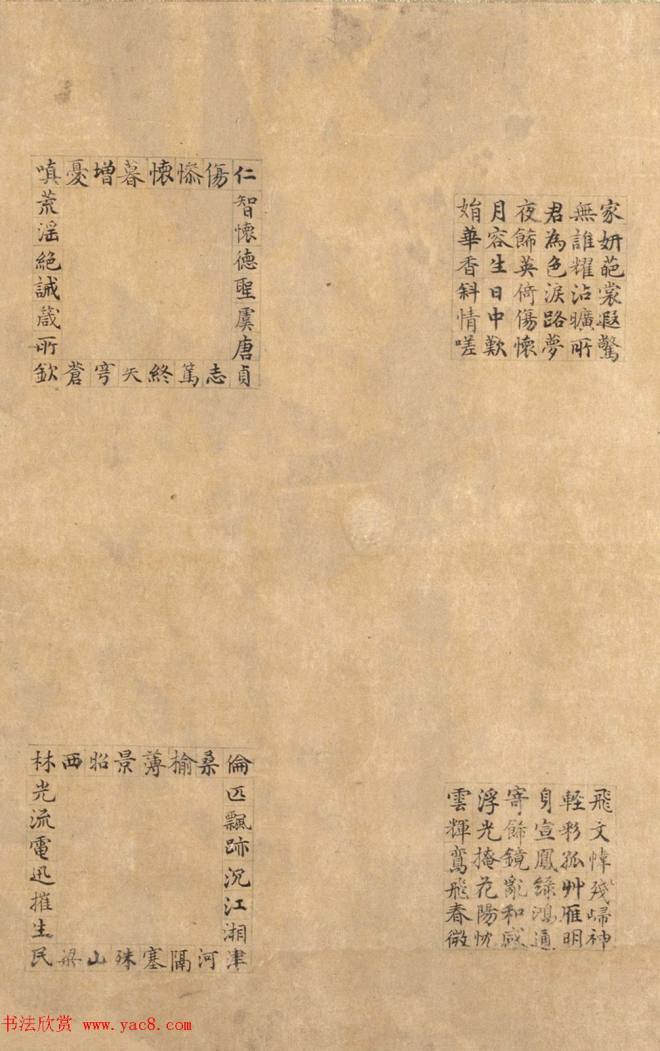 家妍葩裳遐驚
無誰耀沾曠所
君為色淚路夢
夜飾英倚傷懷
月容生日中歎
華香斜情嗟
仁智懷德聖虞唐貞
傷慘懷暮增憂嗔
荒滛絕誡箴所欽
志篤終天穹蒼
飛文悼殘歸神
輕彩孤艸雁明
身宣鳳綠鴻通
寄飾鏡亂和感
浮光掩花陽忱
雲輝鸞飛春微
倫匹飄跡沉江湘津
桑榆薄景昭西林
光流電迅摧生民
河隔塞殊山梁
书法欣赏 www.yac8.com